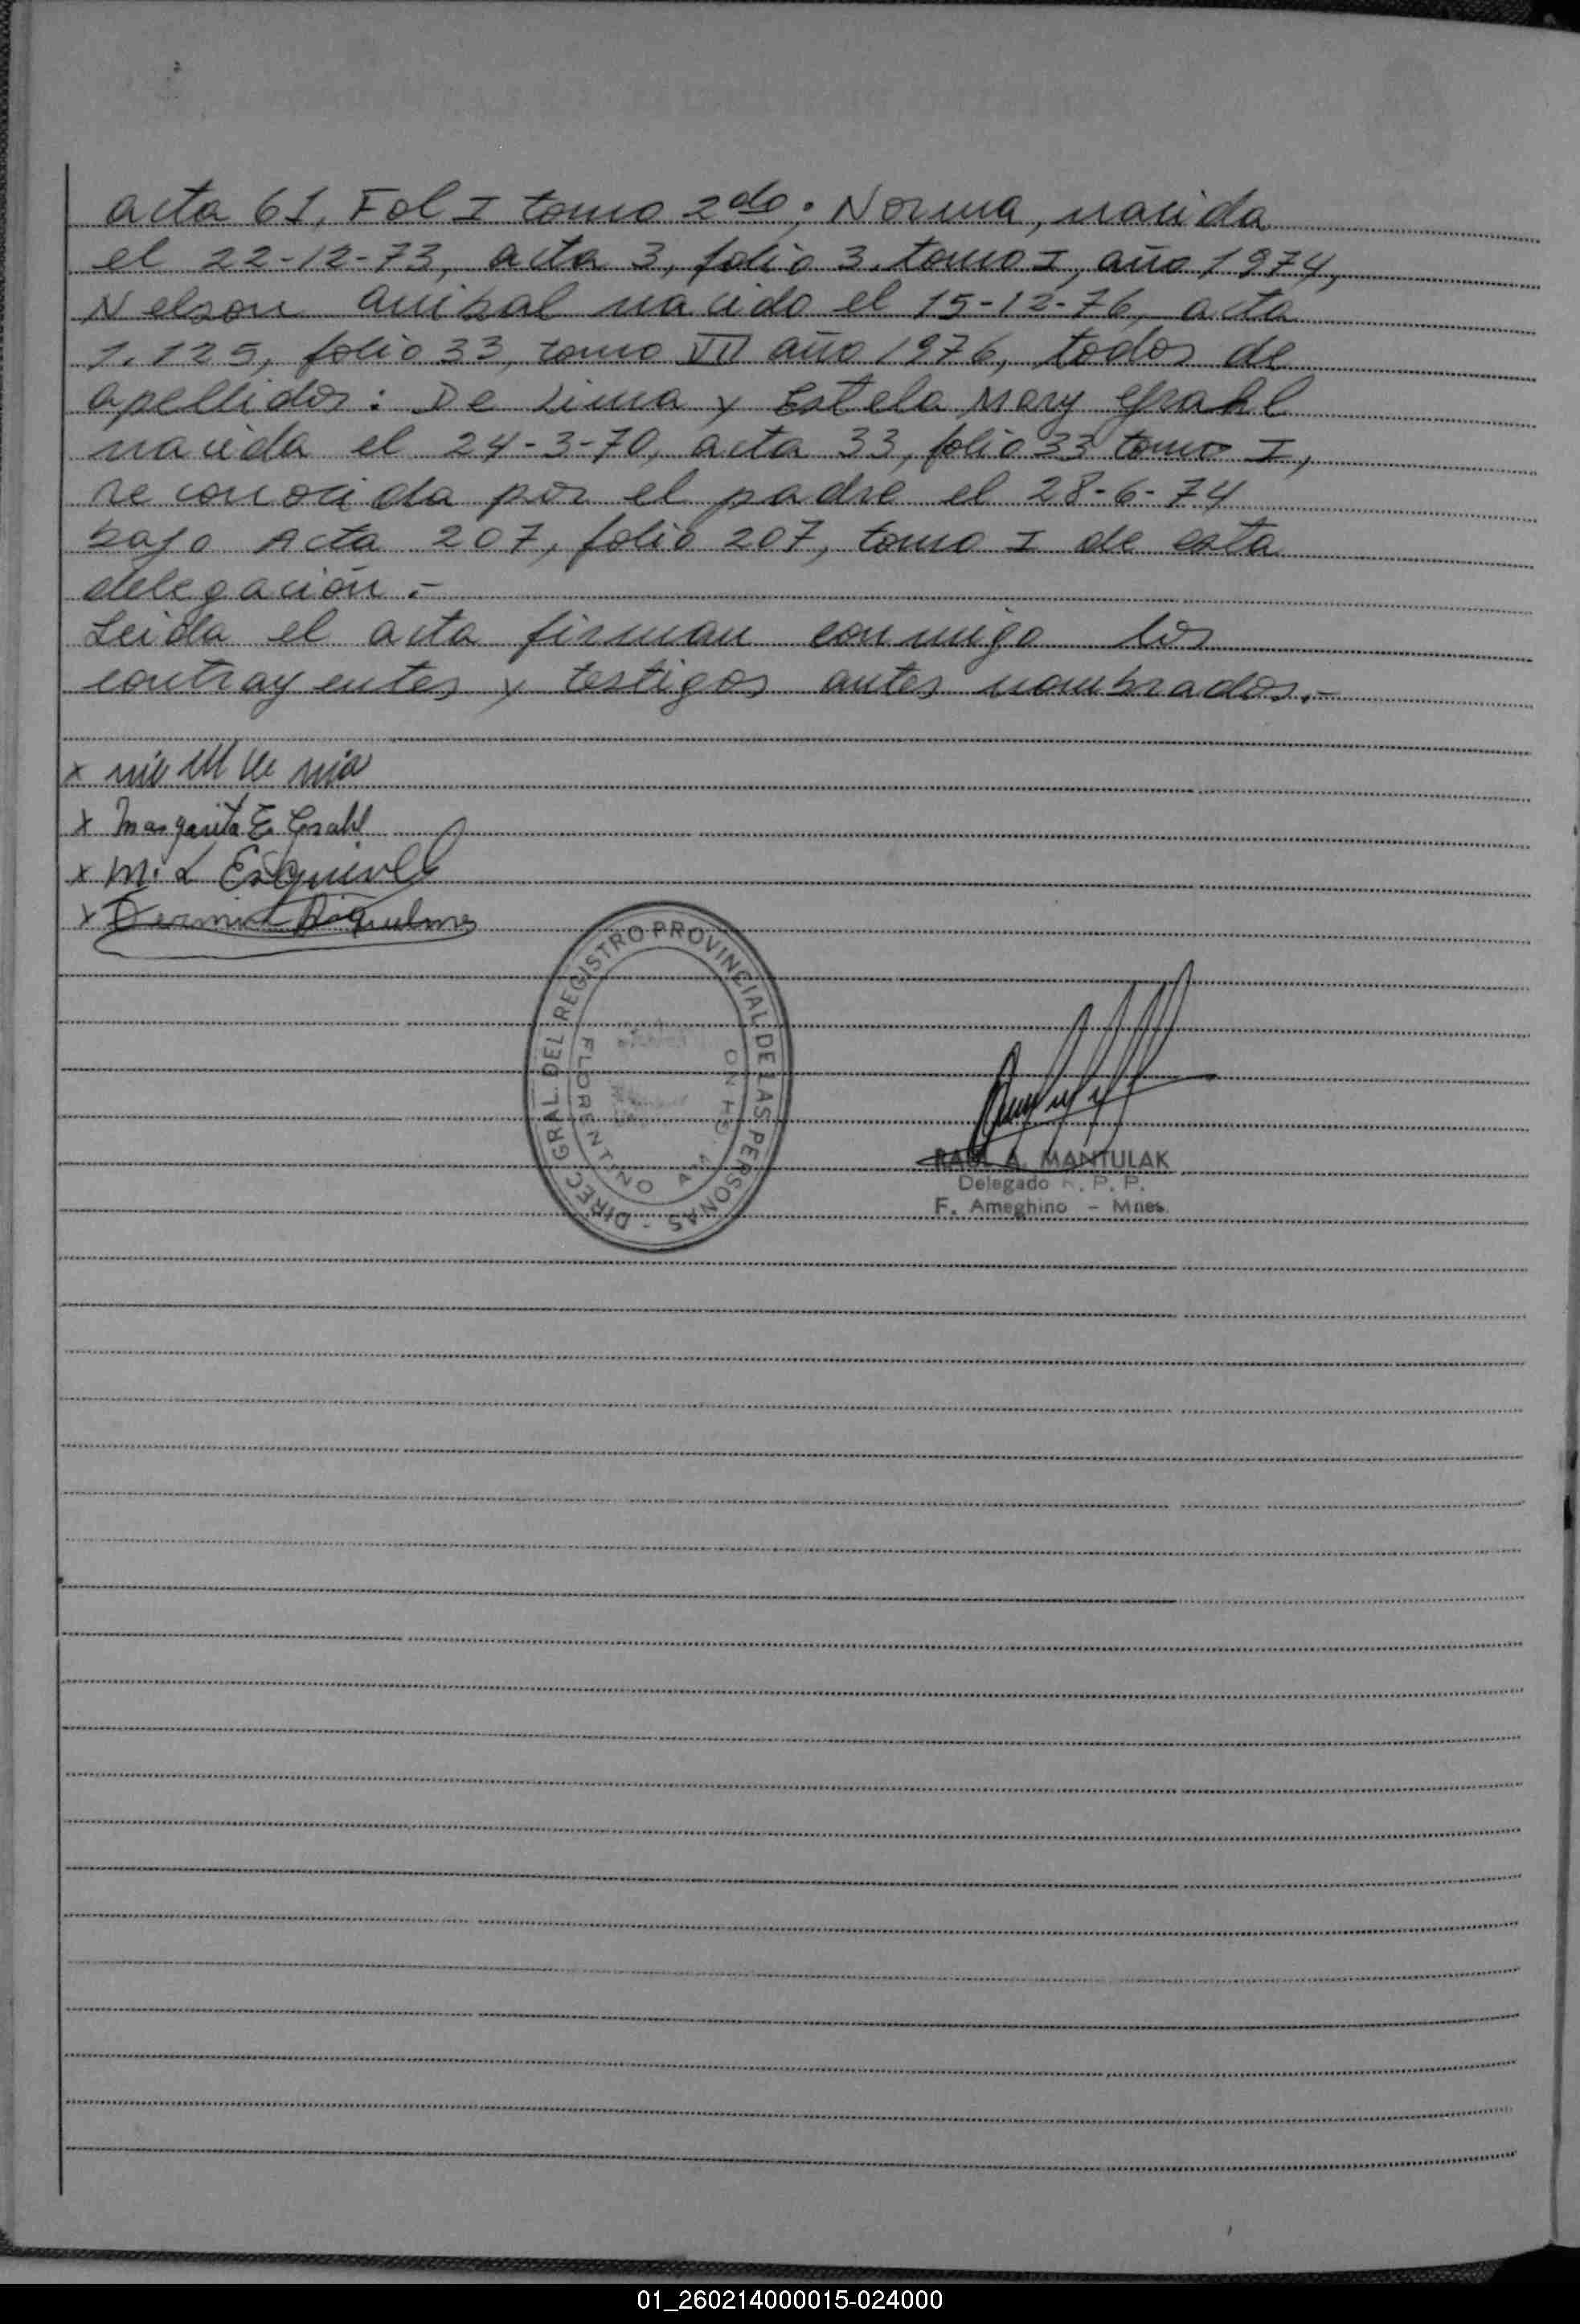 acta 61, Fol I tomo 2do. Norma, nacida
el 22-12-73, acta 3, folio 3. tomo I, año 1974,
Nelson anibal nacido el 15-12-76, acta
1.125, folio 33, tomo VII año 1976, todos de
apellidos: De Lima y Estela Mary Grahl
nacida el 24-3-70, acta 33, folio 33 tomo I,
reconocida por el padre el 28-6-74
bajo Acta 207, folio 207, tomo I de esta
delegación.-
Leida el acta firman conmigo los
contrayentes y testigos antes nombrados.-
x
x Margarita E. Grahl
x M. L Esquivel
x Riquelme
DIREC. GRAL. DEL REGISTRO PROVINCIAL DE LAS PERSONAS -
FLORENTINO AM GHINO
RAUL A. MANTULAK
Delegado R. P. P.
F. Ameghino - Mnes.
01_260214000015-024000